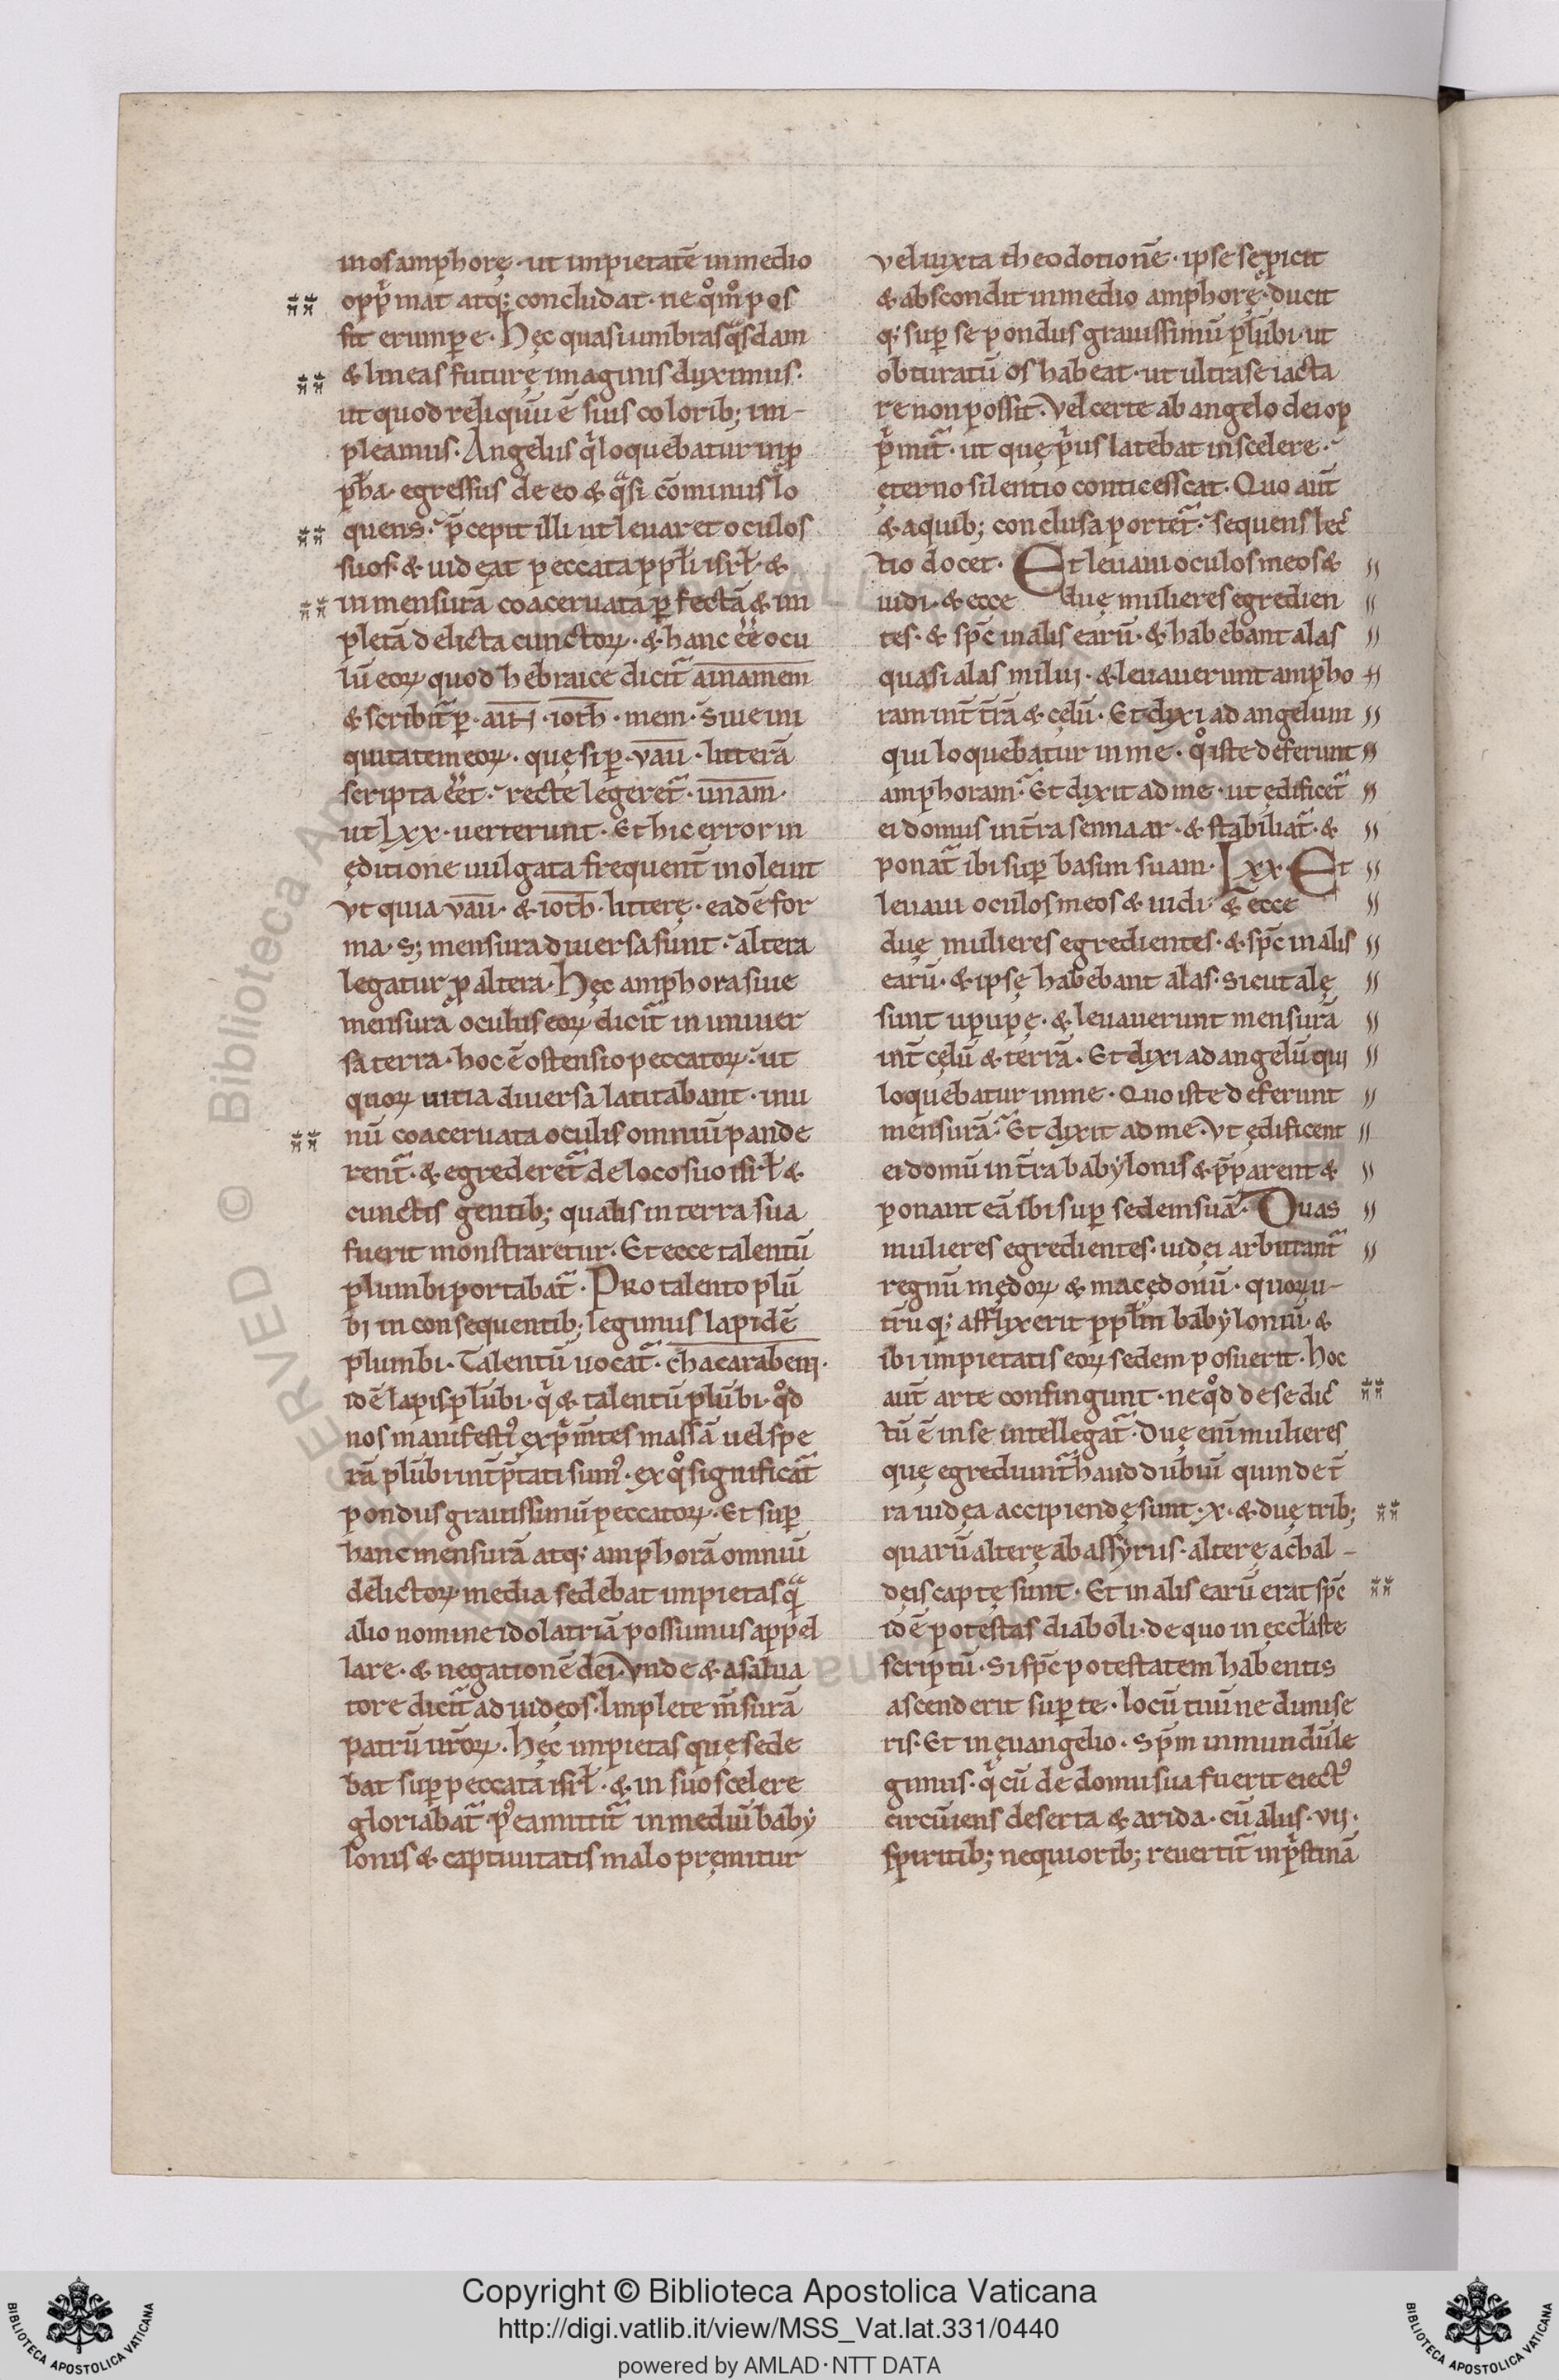 in os amphorę · ut impietatē in medio
opp̍mat atq; concludat · ne q̊m̊ pos
sit erumpe · Hęc quasi umbras q̃sdam
& lineas futurę imaginis duximus ·
ut quod reliquū ē suis colorib; im-
pleamus · Angelus q̍ loquebatur in p
pħa · egressus de eo & q̃si cōminus lo
quens · p̄cepit illi ut leuaret oculos
suos · & uideat peccata ppłi isrł · &
in mensurā coaceruata pfectā & im
pletā delicta cunctoꝝ · & hanc ēē ocu
lū eoꝝ quod hebraice dicitᷓ ainamem
& scribitᷓ p · ain · ioth · mem · Siue ini
quitatem eoꝝ · quę si p · vau · litterā
scripta ēēt · recte legeretᷓ · unam ·
ut Lxx · uerterunt · Et hic error in
editione uulgata frequent̄ inoleuit
Vt quia vau · & ioth · litterę · eadē for
ma · s; mensura diuersa sunt · altera
legatur ꝓ altera · Hęc amphora siue
mensura oculus eoꝝ dicitᷓ in uniuer
sa terra · hoc ē ostensio peccatoꝝ · ut
quoꝝ uitia diuersa latitabant · in u
nū coaceruata oculis omniū pande
rentᷓ · & egrederetᷓ de loco suo isrł &
cunctis gentib; qualis in terra sua
fuerit monstraretur · Et ecce talentū
plumbi portabatᷓ · Pro talento plū
bi in consequentib; legimus lapidē
plumbi · Talentū uocatᷓ · chacarabem ·
idē lapis plūbi · q̍ & talentū plūbi · qđ
nos manifesti᾽ exp̍mentes massā uel spe
rā plūbi int̄p̄tati sum᾽ · ex q̊ significatᷓ
pondus grauissimū peccatoꝝ · Et sup
hanc mensurā atq; amphorā omniū
delictoꝝ media sedebat impietas q̃
alio nomine idolatriā possumus appel
lare · & negationē dei · Vnde & a salua
tore dicitᷓ ad iudęos · Implete m̄surā
patrū ur̄oꝝ · Hęc impietas quę sede
bat sup peccata isrł · & in suo scelere
gloriabatᷓ · p᾽ ea mittitᷓ in mediū baby
lonis & captiuitatis malo pręmitur
vel iuxta theodotionē · ipse se picit
& abscondit in medio amphorę · ducit
q; sup se pondus grauissimū plūbi · ut
obturatū os habeat · ut ultra se iacta
re non possit · Vel certe ab angelo dei op
p̍mitᷓ · ut quę p̍us latebat in scelere ·
ęterno silentio conticesscat · Quo aut̄
& a quib; conclusa portetᷓ · sequens lec̄
tio docet · Et leuaui oculos meos &
uidi · & ecce duę mulieres egredien
tes · & sp̄c in alis earū · & habebant alas
quasi alas milui · & leuauerunt ampho
ram int̄ t̄rā & cęlū · Et dixi ad angelum
qui loquebatur in me · q̊ iste deferunt
amphoram · Et dixit ad me · ut ędificetᷓ
ei domus in t̄ra sennaar · & stabiliatᷓ · &
ponatᷓ ibi sup basim suam · Lxx · Et
leuaui oculos meos & uidi · & ecce
duę mulieres egredientes · & sp̄c in alis
earū · & ipsę habebant alas · sicut alę
sunt upupę · & leuauerunt mensurā
int̄ cęlū & terrā · Et dixi ad angelū qui
loquebatur in me · Quo iste deferunt
mensurā · Et dixit ad me · Vt ędificent
ei domū in t̄ra babylonis & p̄parent &
ponant eā ibi sup sedem suā · Duas
mulieres egredientes · iudęi arbitrantᷓ
regnū mędoꝝ & macędonū · quoꝝ u-
trūq; afflixerit ppłm babyloniū · &
ibi impietatis eoꝝ sedem posuerit · hoc
aut̄ arte confingunt · ne qđ de se dic̄
tū ē in se intellegatᷓ · Duę enī mulieres
quę egrediuntᷓ haud dubiū quin de t̄
ra iudęa accipiendę sunt · x · & duę trib;
quarū alterę ab assyriis · alterę a chal-
dęis captę sunt · Et in alis earū erat sp̄c
idē potestas diaboli · de quo in eccłiaste
scriptū · Si sp̄c potestatem habentis
ascenderit sup te · locū tuū ne dimise
ris · Et in ęuangelio · Sp̄m inmundū le
gimus · q̍ cū de domu sua fuerit eiect᾽
circūiens deserta & arida · cū aliis · vij ·
spiritib; nequiorib; reuertitᷓ in p̍stinā
Copyright © Biblioteca Apostolica Vaticana
http://digi.vatlib.it/view/MSS_Vat.lat.331/0440
powered by AMLAD · NTT DATA
BIBLIOTECA APOSTOLICA VATICANA
BIBLIOTECA APOSTOLICA VATICANA